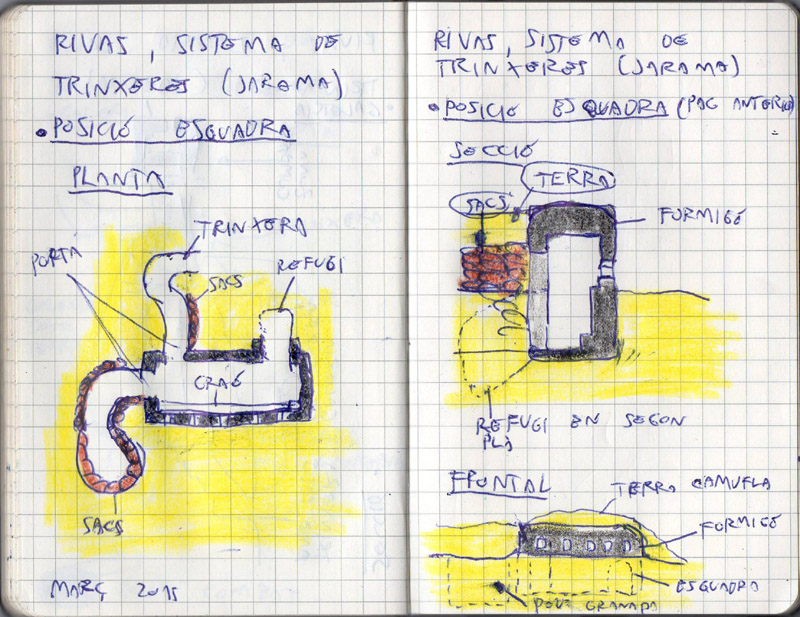 RIVAS, SISTEMA DE
TRINXERES (JARAMA)
• POSICIÓ ESQUADRA
PLANTA
TRINXERA
PORTA
SACS
REFUGI
GRAÓ
SACS
MARÇ 2015
RIVAS, SISTEMA DE
TRINXERES (JARAMA)
• POSICIÓ ESQUADRA (PAG ANTERIO
SECCIÓ
TERRA
SACS
FORMIGÓ
REFUGI EN SEGON
PLA
FRONTAL
TERRA CAMUFLA
FORMIGÓ
ESQUADRA
POU GRANADA